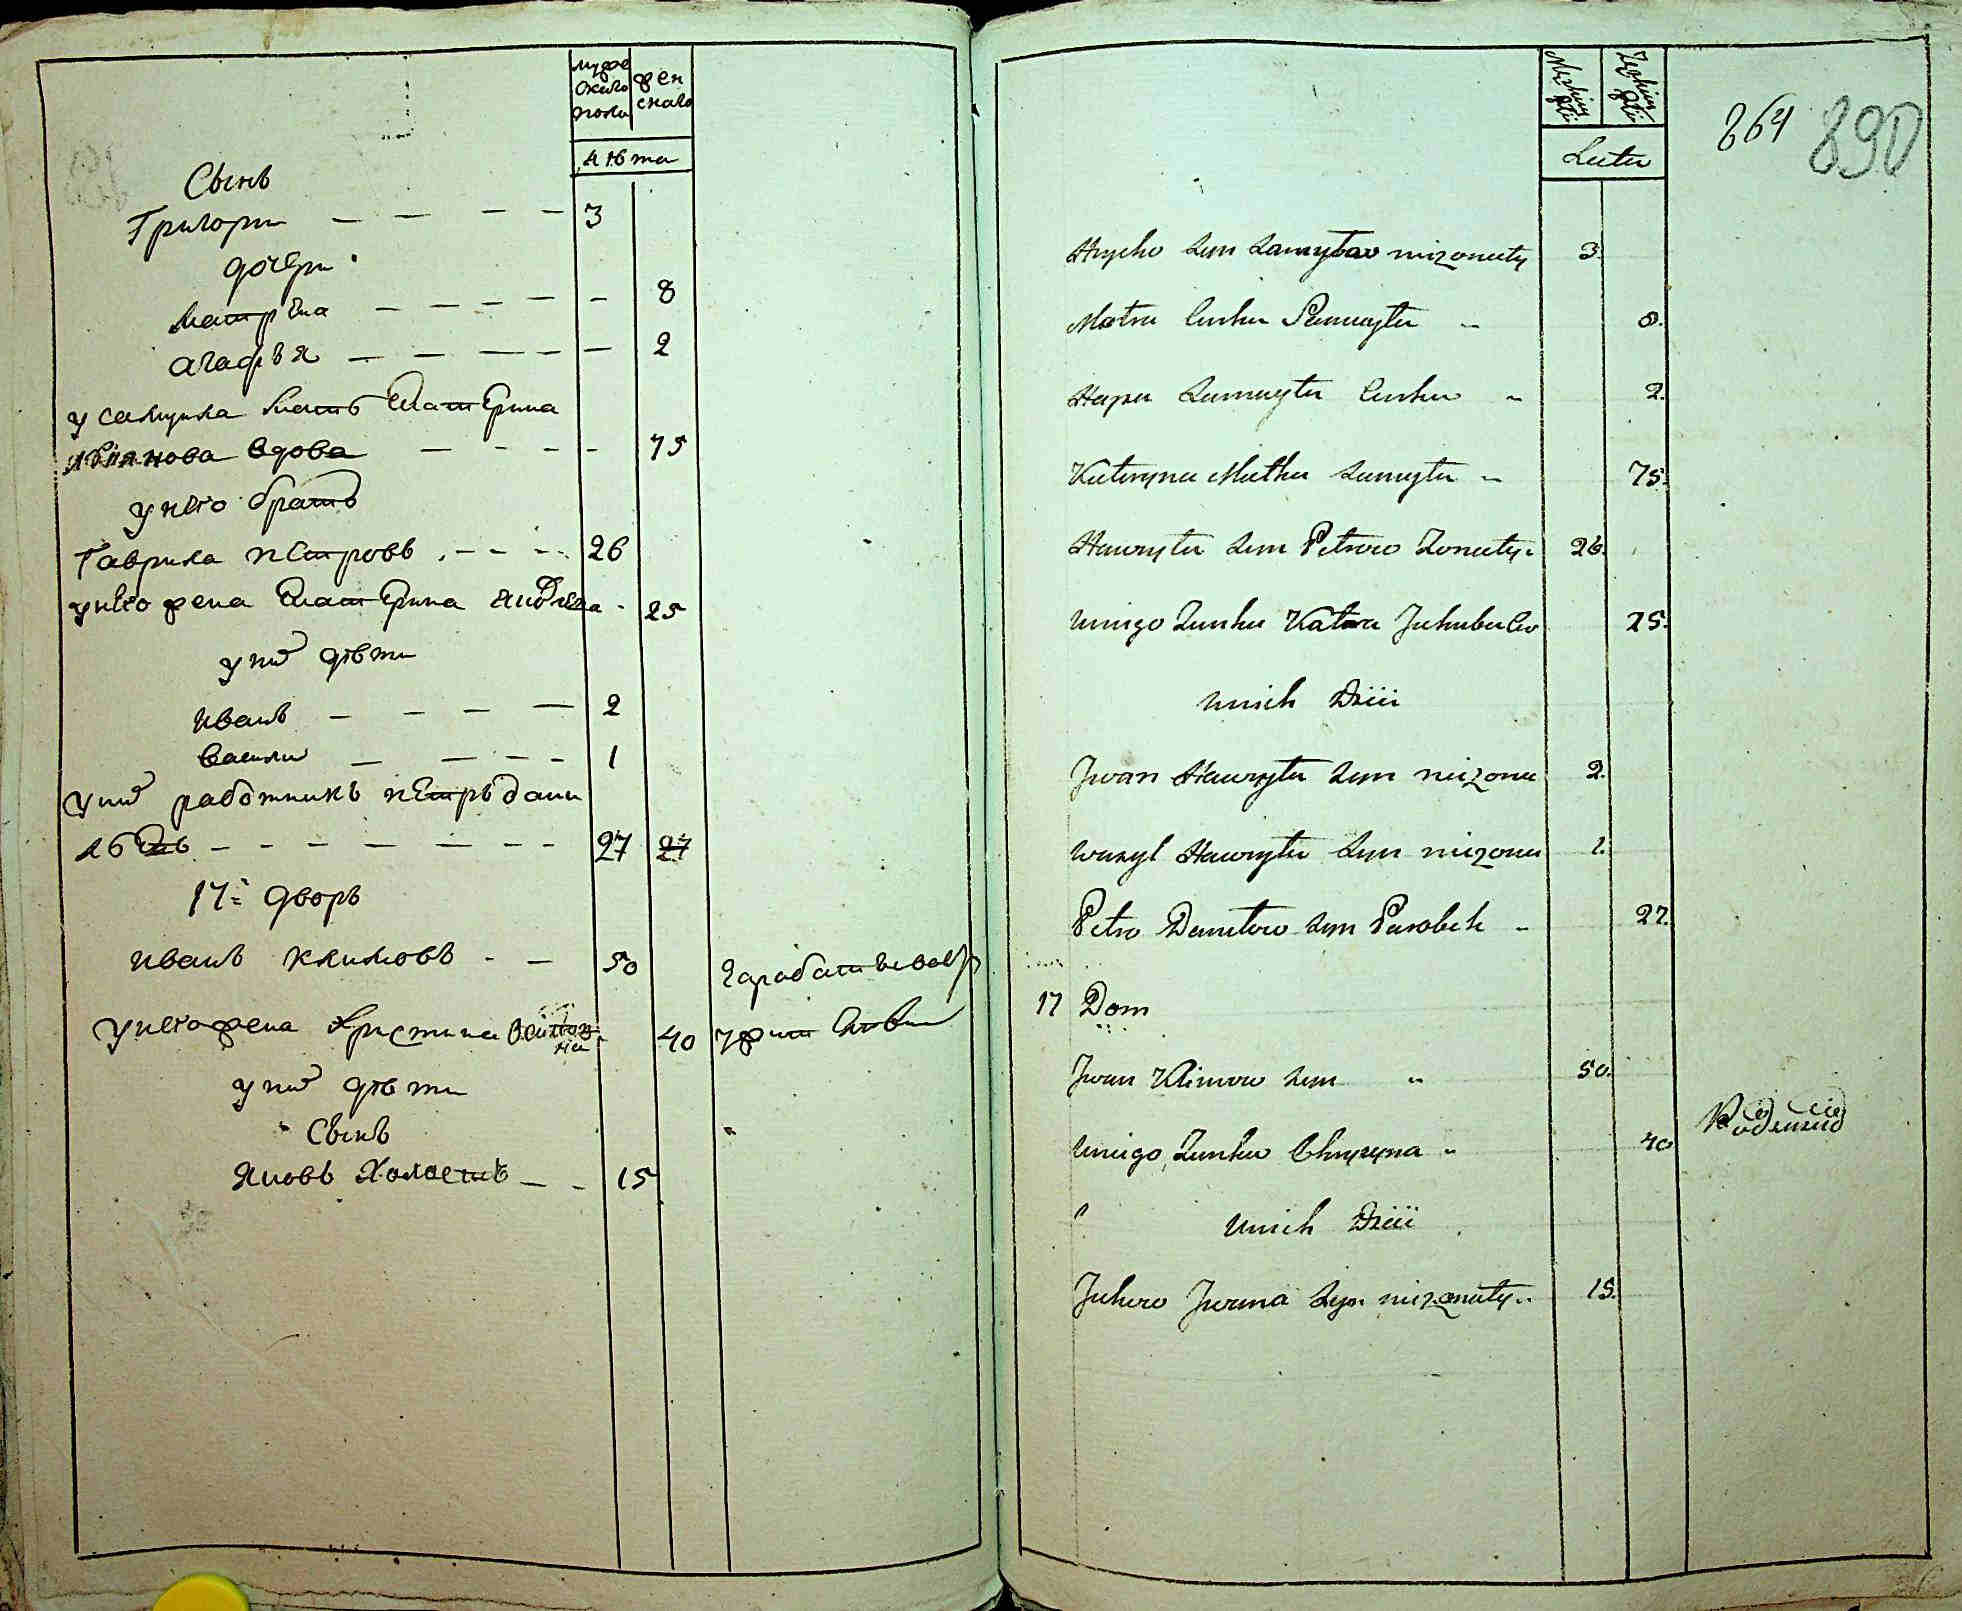 мужескаго пола
женскаго
лѣта
Сынъ
Григори 3
дочери
Матрѣна 8
агафья 2
у самуила мать Екатерина
вдова 75
у него братъ
Гаврила петровъ 26
у него жена Екатерина 25
у них дѣти
иванъ 2
васили 1
у них работникъ петръ дани
ловъ 27 27
17й дворъ
иванъ климовъ 50
у него жена Христина 40
у них дѣти
Сынъ
Яковъ Холостъ 15
Męzkiey płci
Żeńkiey płci
Lata
864 890
Hryćko syn Samuyłow nizonaty 3.
Motra Curka Samuyła 8.
Hapa Samuyła Curka 2.
Kateryna Matka Samuyła 75.
Hawryło syn Petrow Zonaty 26.
Unigo Zonka Katra 25.
Unich Dzici
Jwan Hawryła syn nizona 2.
Wasyl Hawryła syn nizona 1.
Petro Daniłow syn Parobek 27.
17 Dom
Jwan Klimow syn 50.
Unigo Zonka Chryzyna 40
Unich Dzici
Jakow Jwana syn nizonaty 15.